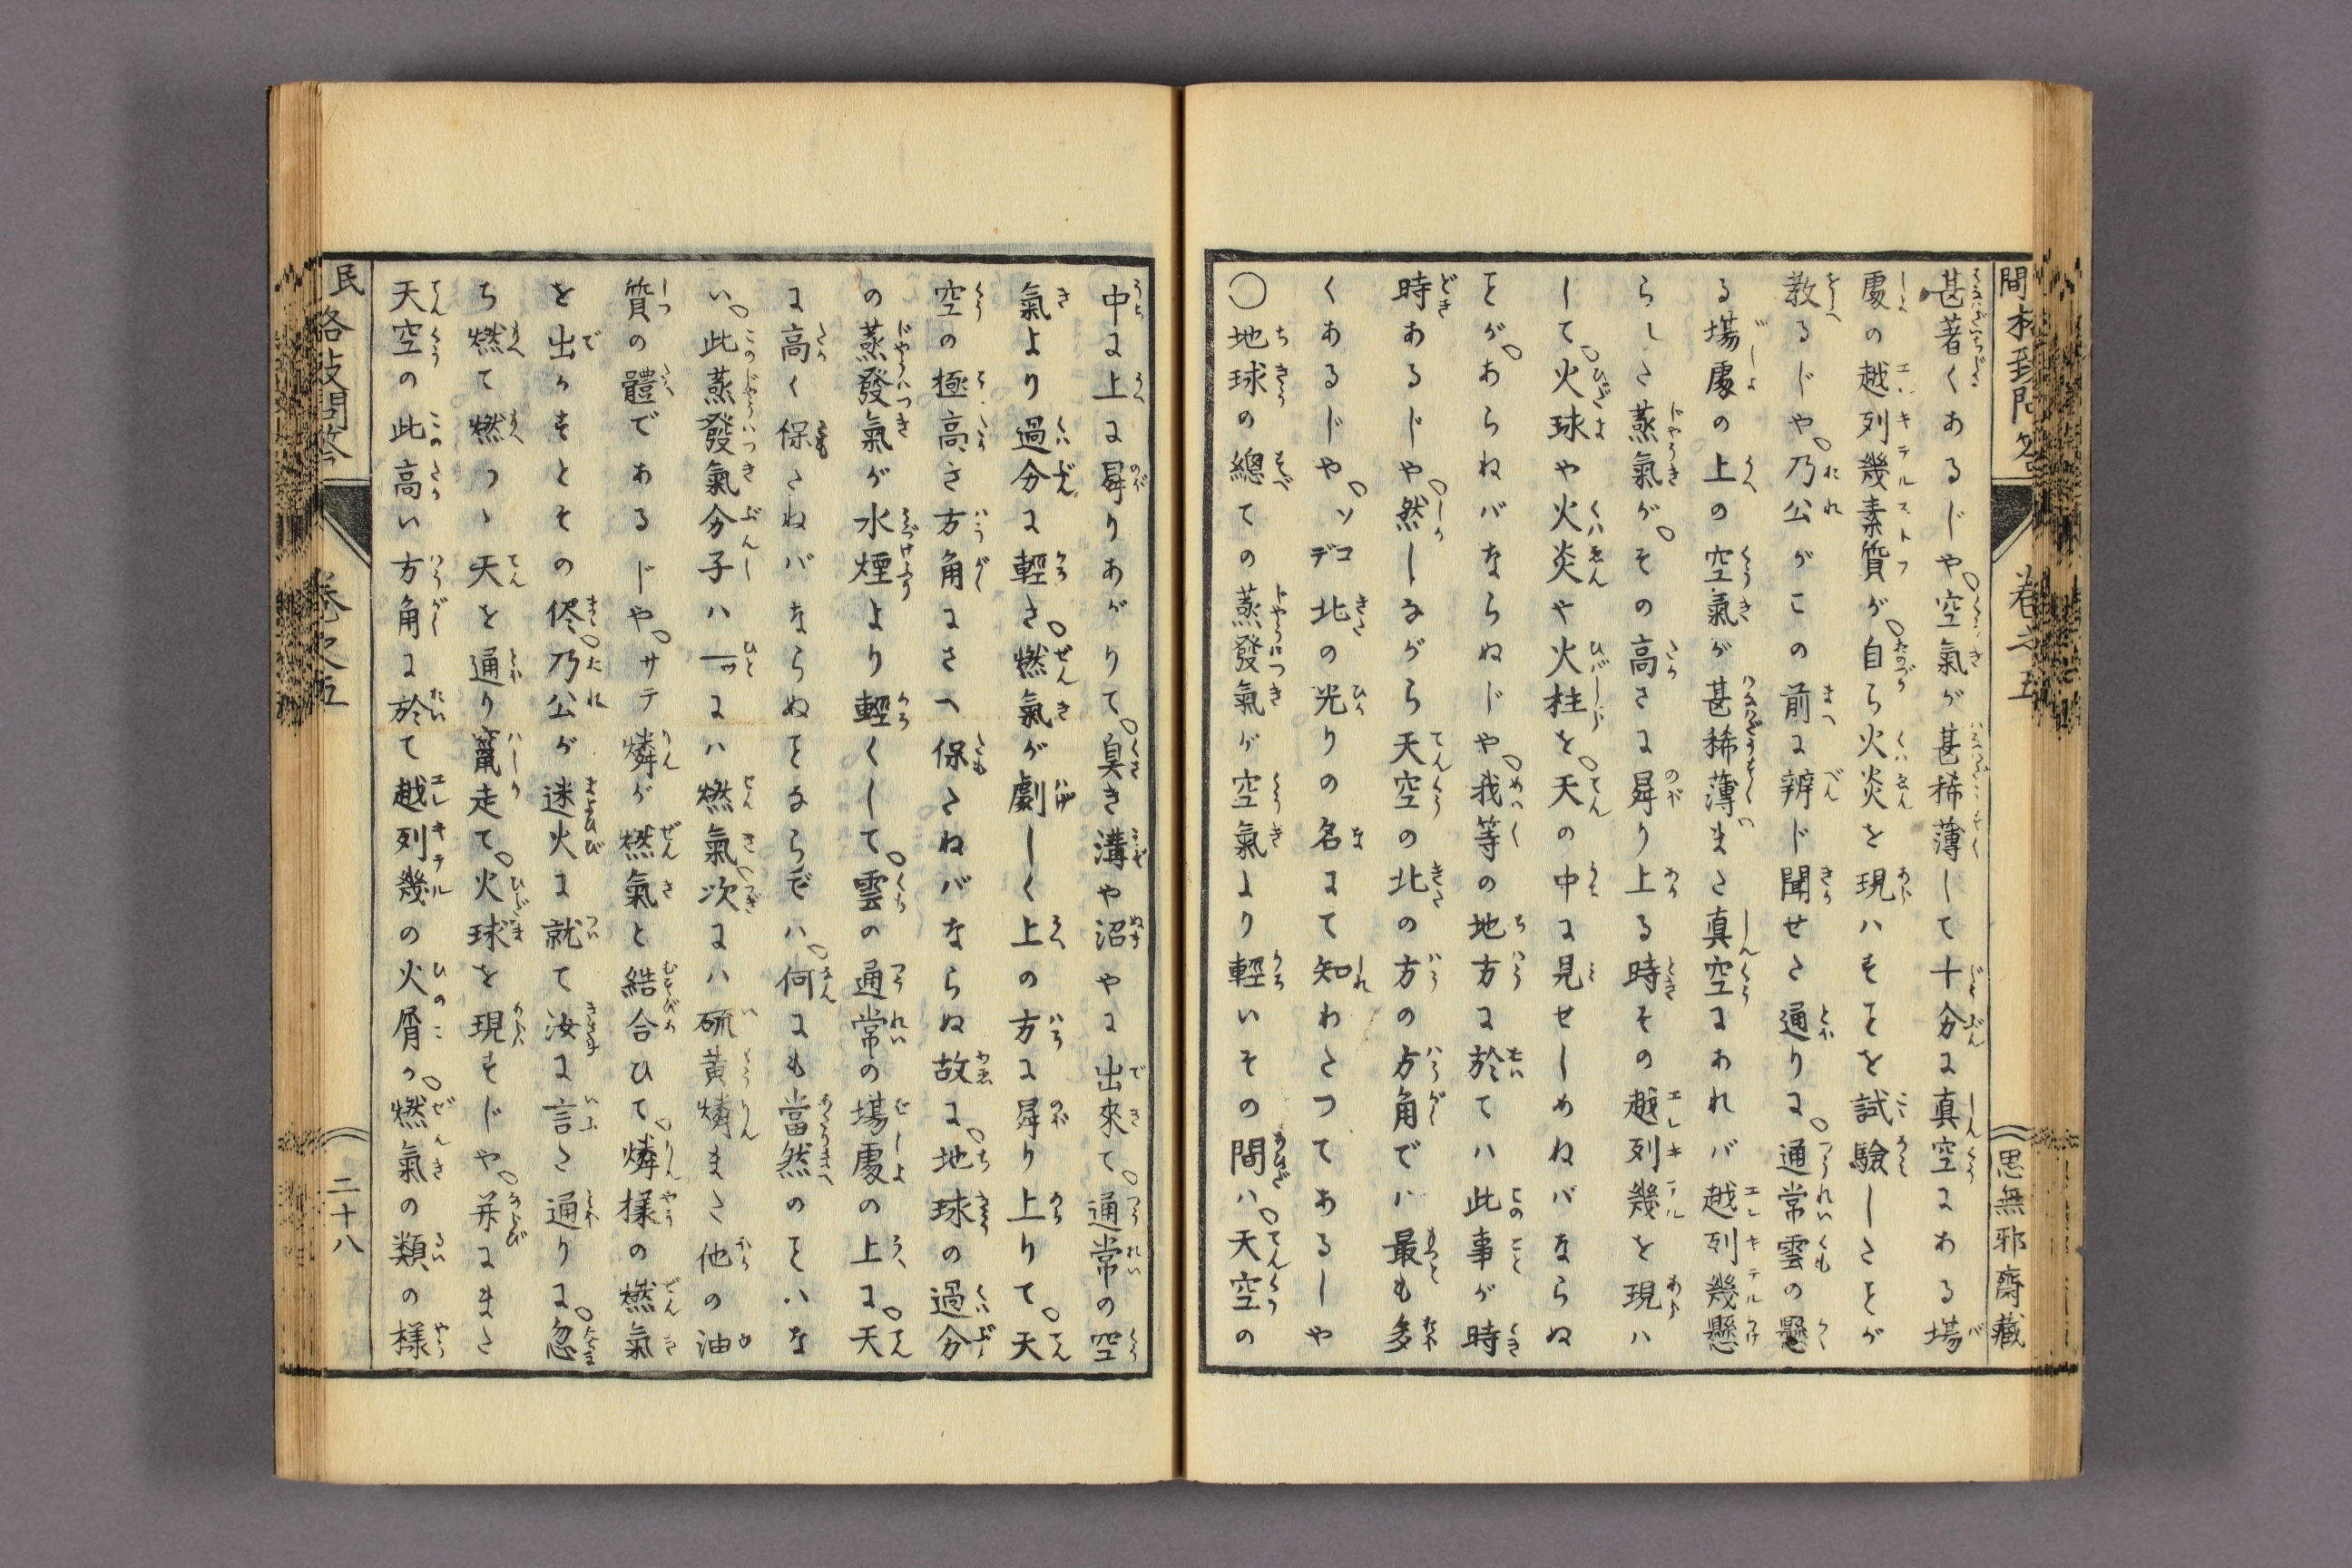 甚著くあるじや。空氣が甚稀薄して十分に真空にわる場
處の越列幾素質が。自ら火炎を現ハすヿを試驗しさヿが
教るじや。乃公がこの前に辨ド聞せさ通りに。通常雲の懸
る場處の上の空氣が甚稀薄まさ真空にわれバ越列幾懸
らしさ蒸氣が。その高さに昇り上る時その越列幾を現ハ
して。火球や火炎や火柱を。天の中に見せしめねバならぬ
ヿが。あらねバならぬじや。我等の地方に於てハ此事が時
時あるじや。然しながら天空の北の方の方角でハ最も多
くあるじや。ソコデ北の光りの名にて知わさつてあるしや
○地球の總ての蒸發氣が空氣より輕いその間ハ。天空の
思無邪齋藏
中に上に昇りあがりて。臭き溝や沼やに出來て。通常の空
氣より過分に輕き。燃氣が劇しく上の方に昇り上りて。天
空の極高き方角にさへ保さねバならぬ故に。地球の過分
の蒸發氣が水煙より輕くして。雲の通常の場處の上に。天
に高く保さねバならぬヿならでハ。何にも當然のヿハな
い。此蒸發氣分子ハ一ッにハ燃氣次にハ硫黄燐まさ他の油
質の體であるじや。サテ燐が燃氣と結合ひて。燐樣の燃氣
を出かすとその侭。乃公が迷火に就て汝に言さ通りに。忽
ち燃て燃つヽ天を通り竄走て。火球を現すじや。并にまさ
天空の此高い方角に於て越列幾の火屑か。燃氣の類の樣
二十八